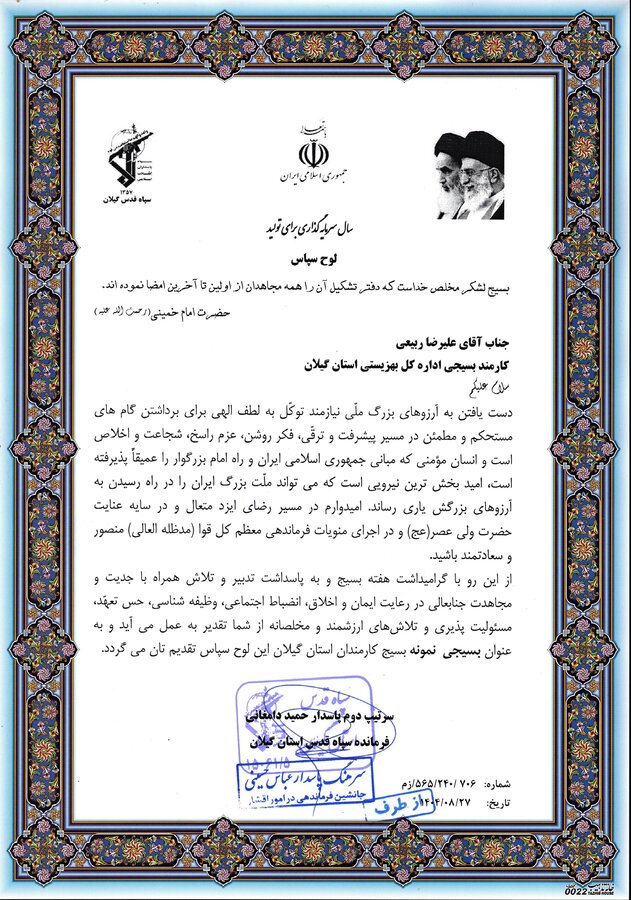 باسمه تعالی
جمهوری اسلامی ایران
سپاه
پاسداران
انقلاب
اسلامی
۱۳۵۷
سپاه قدس گیلان
سال سرمایه گذاری برای تولید
لوح سپاس
بسیج لشکر مخلص خداست که دفتر تشکیل آن را همه مجاهدان از اولین تا آخرین امضا نموده اند.
حضرت امام خمینی(رحمت الله علیه)
جناب آقای علیرضا ربیعی
کارمند بسیجی اداره کل بهزیستی استان گیلان
سلام علیکم
دست یافتن به آرزوهای بزرگ ملّی نیازمند توکّل به لطف الهی برای برداشتن گام های
مستحکم و مطمئن در مسیر پیشرفت و ترقّی، فکر روشن، عزم راسخ، شجاعت و اخلاص
است و انسان مؤمنی که مبانی جمهوری اسلامی ایران و راه امام بزرگوار را عمیقاً پذیرفته
است، امید بخش ترین نیرویی است که می تواند ملّت بزرگ ایران را در راه رسیدن به
آرزوهای بزرگش یاری رساند. امیدوارم در مسیر رضای ایزد متعال و در سایه عنایت
حضرت ولی عصر(عج) و در اجرای منویات فرماندهی معظم کل قوا (مدظله العالی) منصور
و سعادتمند باشید.
از این رو با گرامیداشت هفته بسیج و به پاسداشت تدبیر و تلاش همراه با جدیت و
مجاهدت جنابعالی در رعایت ایمان و اخلاق، انضباط اجتماعی، وظیفه شناسی، حس تعهّد،
مسئولیت پذیری و تلاش‌های ارزشمند و مخلصانه از شما تقدیر به عمل می آید و به
عنوان بسیجی نمونه بسیج کارمندان استان گیلان این لوح سپاس تقدیم تان می گردد.
سپاه قدس
سرتیپ دوم پاسدار حمید دامغانی
فرمانده سپاه قدس استان گیلان
سرهنگ پاسدار عباس
جانشین فرماندهی در امور اقشار
از طرف
شماره: ۷۰۶ /۵۶۵/۲۴۰/زم
تاریخ: ۱۴۰۴/۰۸/۲۷
0022
TAZHIB HOUSE